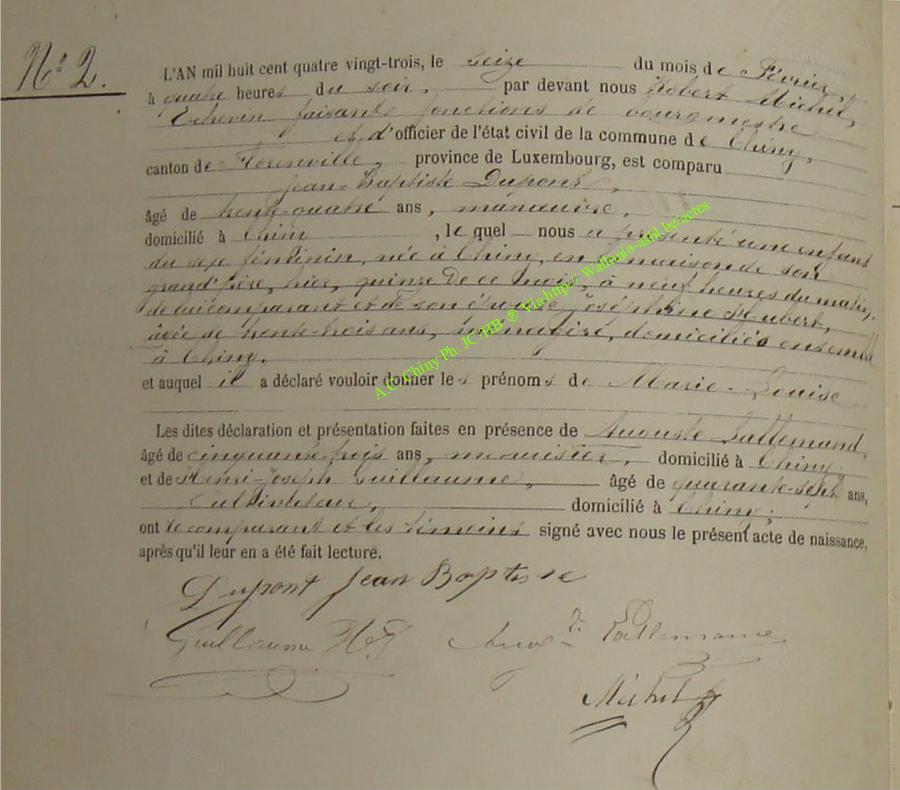 N° 2.
L'AN mil huit cent quatre vingt-trois, le seize du mois de Février,
à quatre heures du soir, par devant nous Hobert Michel,
Echevin faisant fonctions de bourgmestre
et d'officier de l'état civil de la commune de Chiny,
canton de Florenville, province de Luxembourg, est comparu
Jean-Baptiste Dupont,
âgé de trente-quatre ans, manœuvre,
domicilié à Chiny, le quel nous a présenté une enfant
du sexe féminin, née à Chiny, en la maison de son
grand'père, hier, quinze de ce mois, à neuf heures du matin,
de lui comparant et de son épouse Joséphine Hubert,
âgée de trente-trois ans, ménagère, domiciliés ensemble
à Chiny.
et auquel il a déclaré vouloir donner les prénoms de Marie-Louise
Les dites déclaration et présentation faites en présence de Auguste Lallemand,
âgé de cinquante-trois ans, menuisier, domicilié à Chiny
et de Henri-Joseph Guillaume, âgé de quarante-sept ans,
Cultivateur, domicilié à Chiny;
ont le comparant et les témoins signé avec nous le présent acte de naissance,
après qu'il leur en a été fait lecture.
Dupont Jean Baptiste
Guillaume H. J. Aug. Lallemand
Michel
A.C. Chiny Ph. JC-HB ® Via http:// Wallonia-asbl.be/actes